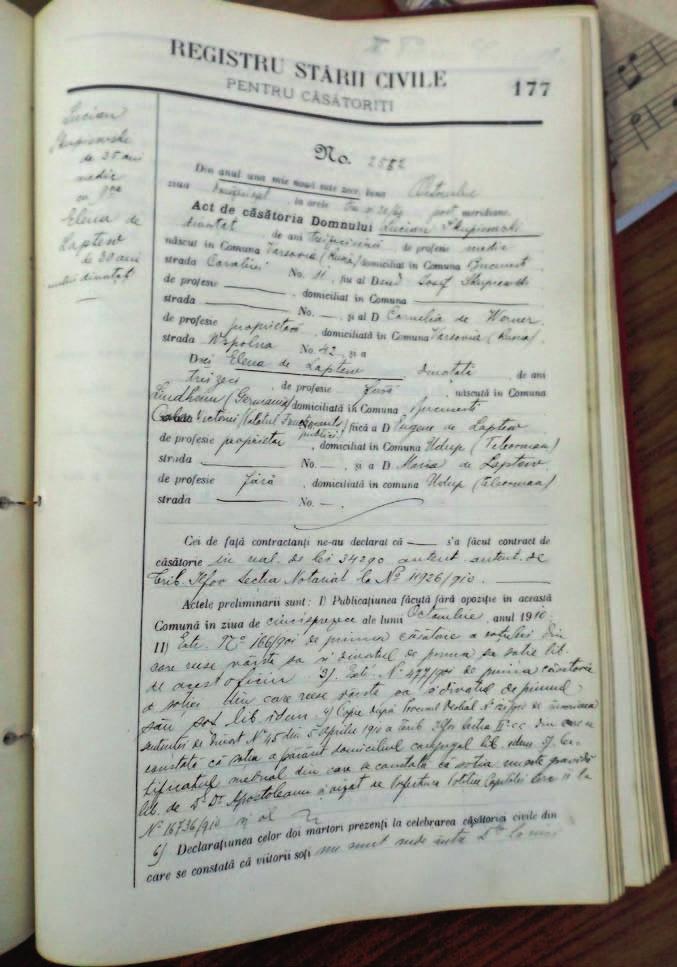 REGISTRU STĂRII CIVILE
PENTRU CĂSĂTORIȚI
177
Lucian
Skupiewski
de 35 ani
medic
cu
Elena de
Laptew
de 30 ani
No. 2582
Din anul una mie nouă sute zece, luna Octombrie
ziua , la orele post meridiane.
Act de căsătoria Domnului Lucian Skupiewski
divorțat , de ani , de profesie medic
născut in Comuna Varsovia (Rusia) domiciliat in Comuna București
strada No. 11, fiu al D Iosef Skupiewski
de profesie , domiciliat in Comuna
strada No. — , și al D Cornelia de Werner.
de profesie proprietară , domiciliată in Comuna Varsovia (Rusia)
strada Wspolna No. 42 și a
D Elena de Laptew , divorțată , de ani
treizeci , de profesie fără , născută in Comuna
Lindheim (Germania) domiciliată in Comuna București
Calea Victoriei fiică a D Eugene de Laptew
de profesie proprietar , domiciliat in Comuna Udup (Teleorman)
strada No. — , și a D Maria de Laptew
de profesie fără , domiciliată in comuna Udup (Teleorman)
strada No. — .
Cei de față contractanți ne-au declarat că — s'a făcut contract de
căsătorie in val. de lei 34290 autent. de
Trib. Ilfov Sectia Notariat la No 11926/910.
Actele preliminarii sunt: I) Publicațiunea făcută fără opoziție in această
Comună in ziua de cincisprezece ale lunii Octombrie , anul 1910.
II) Extr. No 166/901 de prima căsătorie a soțului din
care reese vârsta sa și divorțul de prima sa soție lib.
de acest oficiu. 3) Extr. No 477/901 de prima căsătorie
a soției din care reese vârsta sa și divorțul de primul
său soț lib. idem. 4) Copie după Procesul Verbal No de
sentinței de Divorț No 45 din 5 Aprilie 1910 a Trib. Ilfov Sectia II cc. din care se
constată că soția a părăsit domiciliul conjugal lib. idem. 5) Cer-
tificatul medical din care se constată că soția nu este gravidă
lib. de D. Dr. Apostoleanu și vizat de Prefectura Poliției Capitalei la
No 16736/910
6) Declarațiunea celor doi martori prezenți la celebrarea căsătoriei civile din
care se constată că viitorii soți nu sunt rude intre